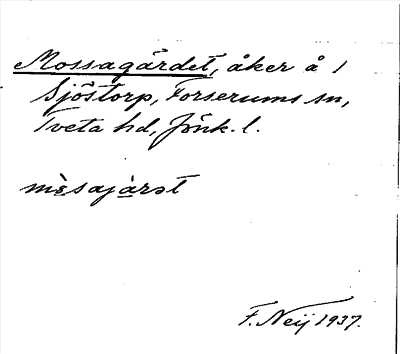 Mossagärdet, åker å 1
Sjöstorp, Forserums sn,
Tveta hd, Jönk. l.
mòsajàrət
F. Neij 1937.